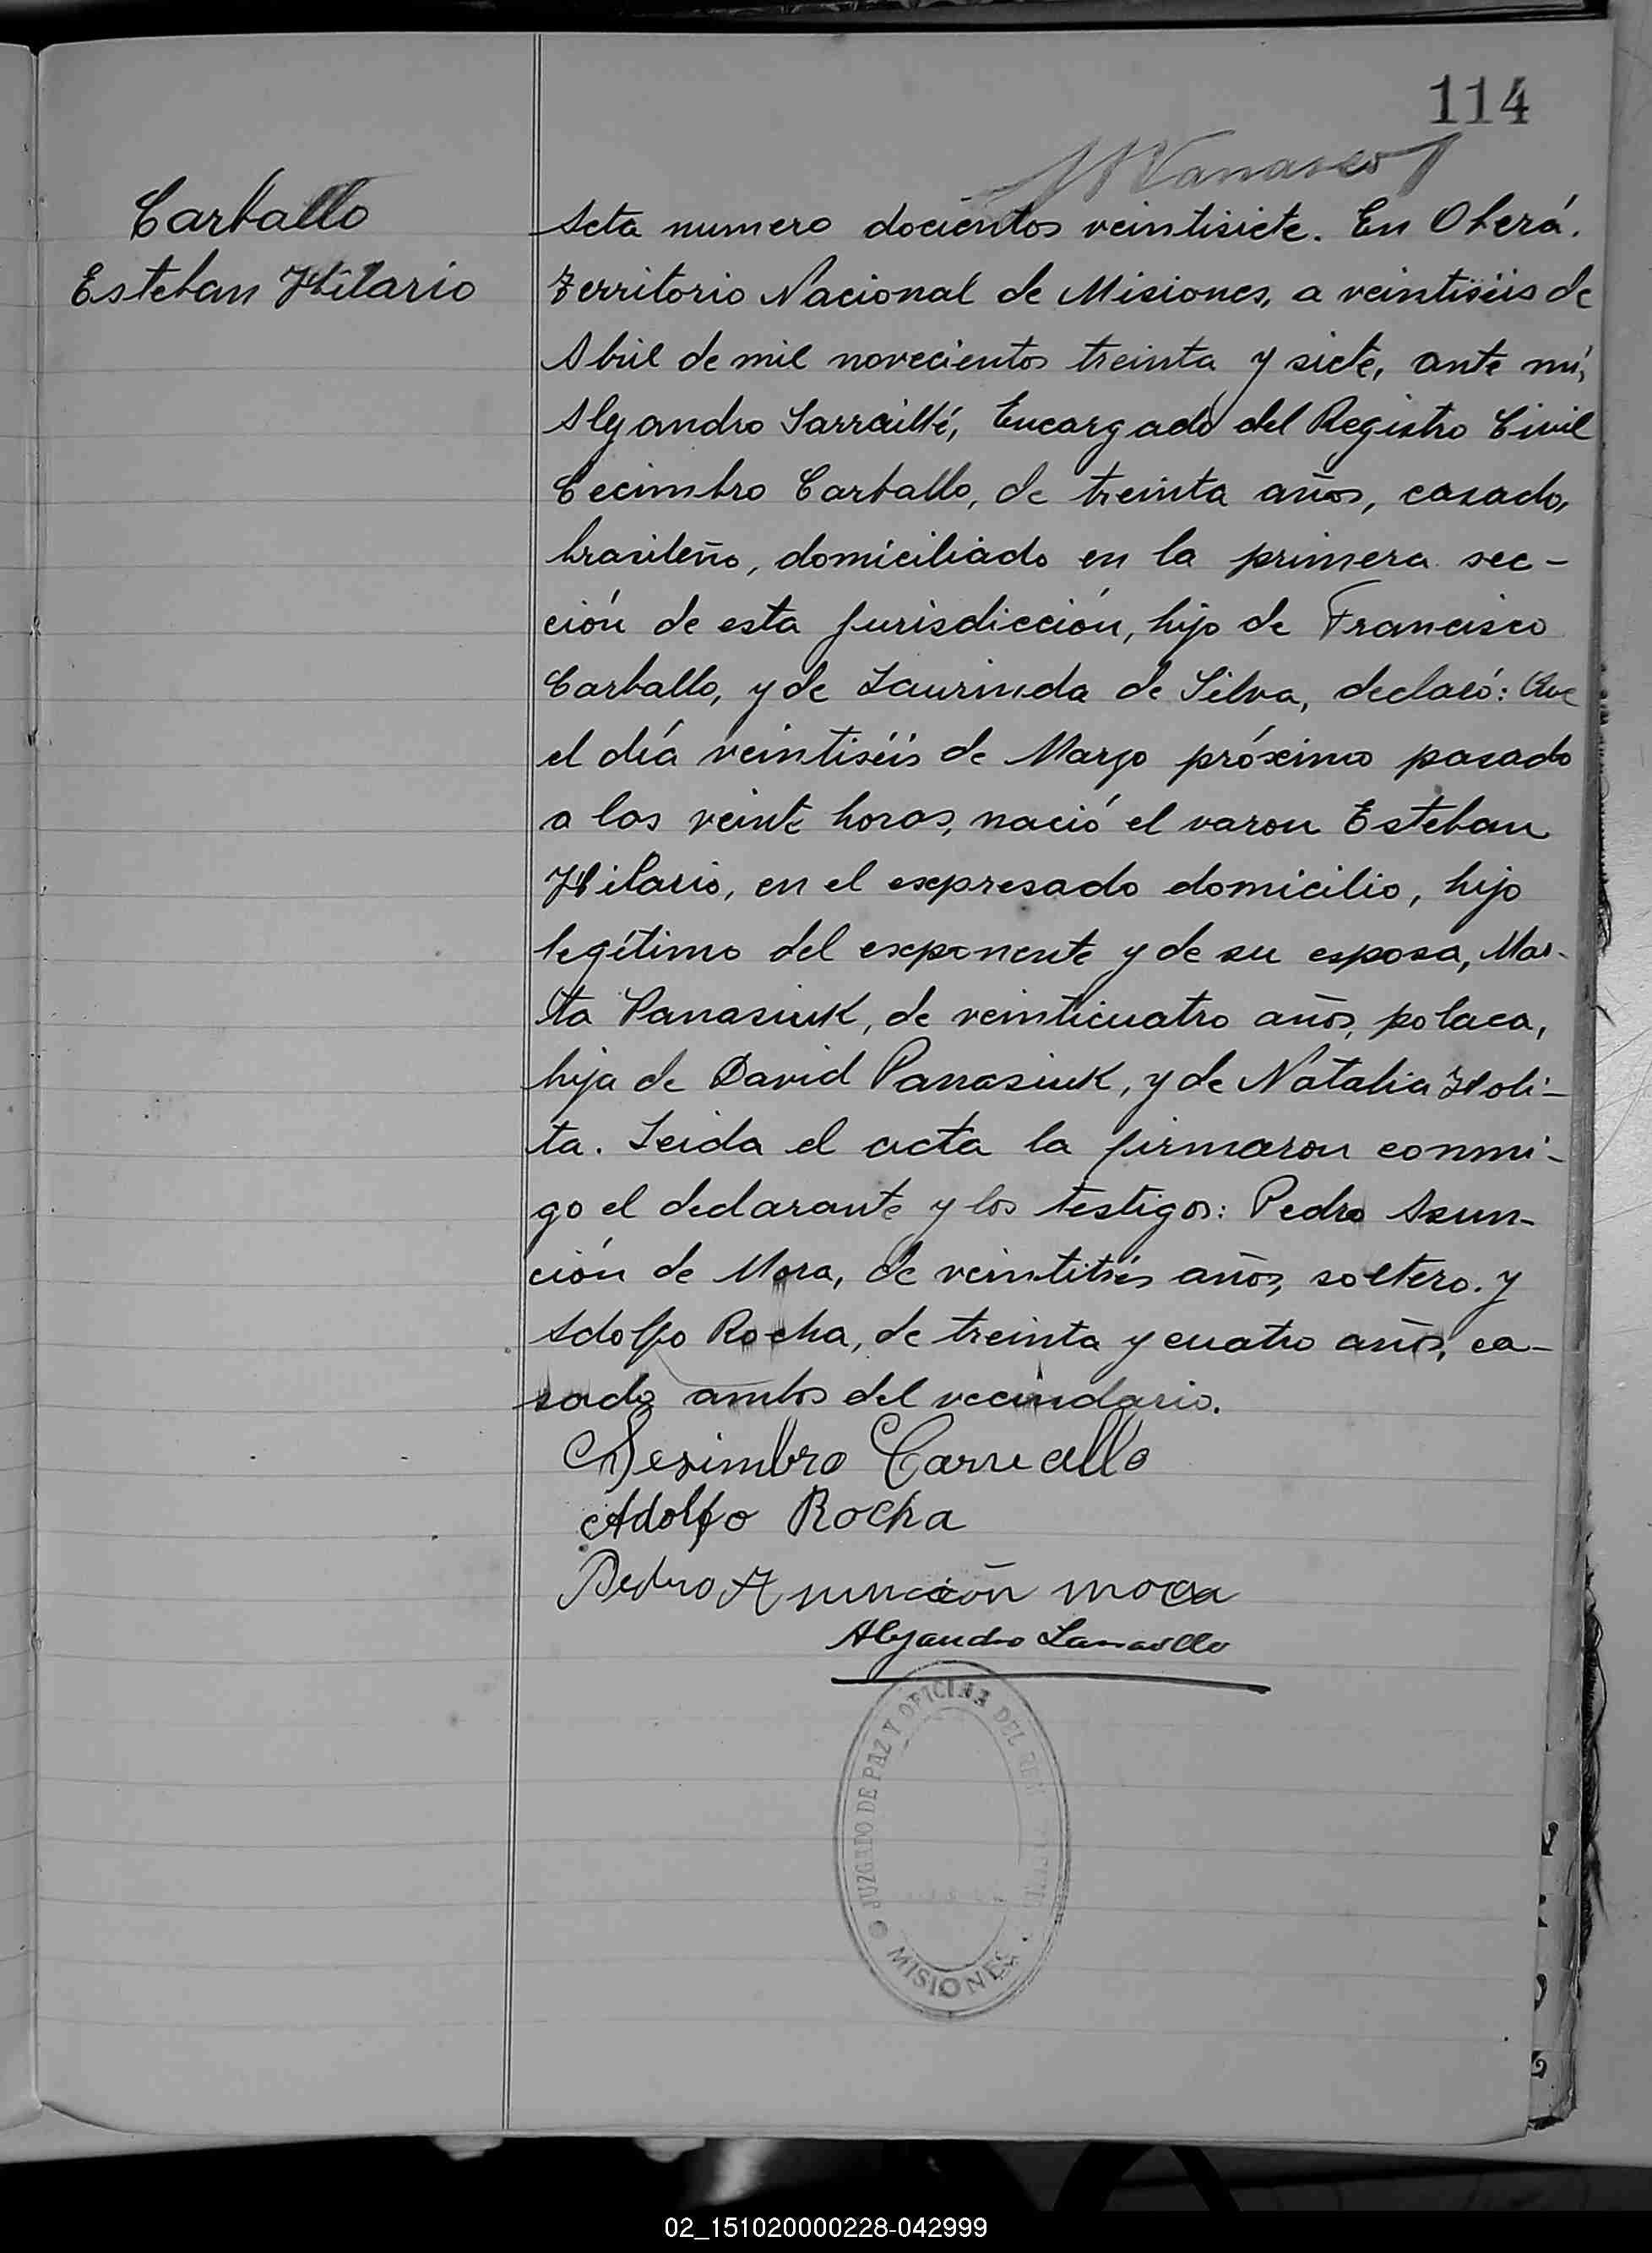 114
Carballo
Esteban Hilario
Acta numero docientos veintisiete. En Oberá.
Territorio Nacional de Misiones, a veintiséis de
Abril de mil novecientos treinta y siete, ante mí,
Alejandro Sarraillé, Encargado del Registro Civil
Cecimbro Carballo, de treinta años, casado,
brasileño, domiciliado en la primera sec-
ción de esta jurisdicción, hijo de Francisco
Carballo, y de Laurinda de Silva, declaró: Que
el día veintiséis de Marzo próximo pasado
a las veinte horas, nació el varon Esteban
Hilario, en el expresado domicilio, hijo
legítimo del exponente y de su esposa, Mar-
ta Panasiuk, de veinticuatro años, polaca,
hija de David Panasiuk, y de Natalia Holi-
ta. Leida el acta la firmaron conmi-
go el declarante y los testigos: Pedro Asun-
ción de Mora, de veintitrés años, soltero. y
Adolfo Rocha, de treinta y cuatro años, ca-
sado ambos del vecindario.
Desimbro Carvallo
Adolfo Rocha
Pedro Asunción mora
Alejandro Sarraillé
JUZGADO DE PAZ Y OFICINA DEL
MISIONES
02_151020000228-042999